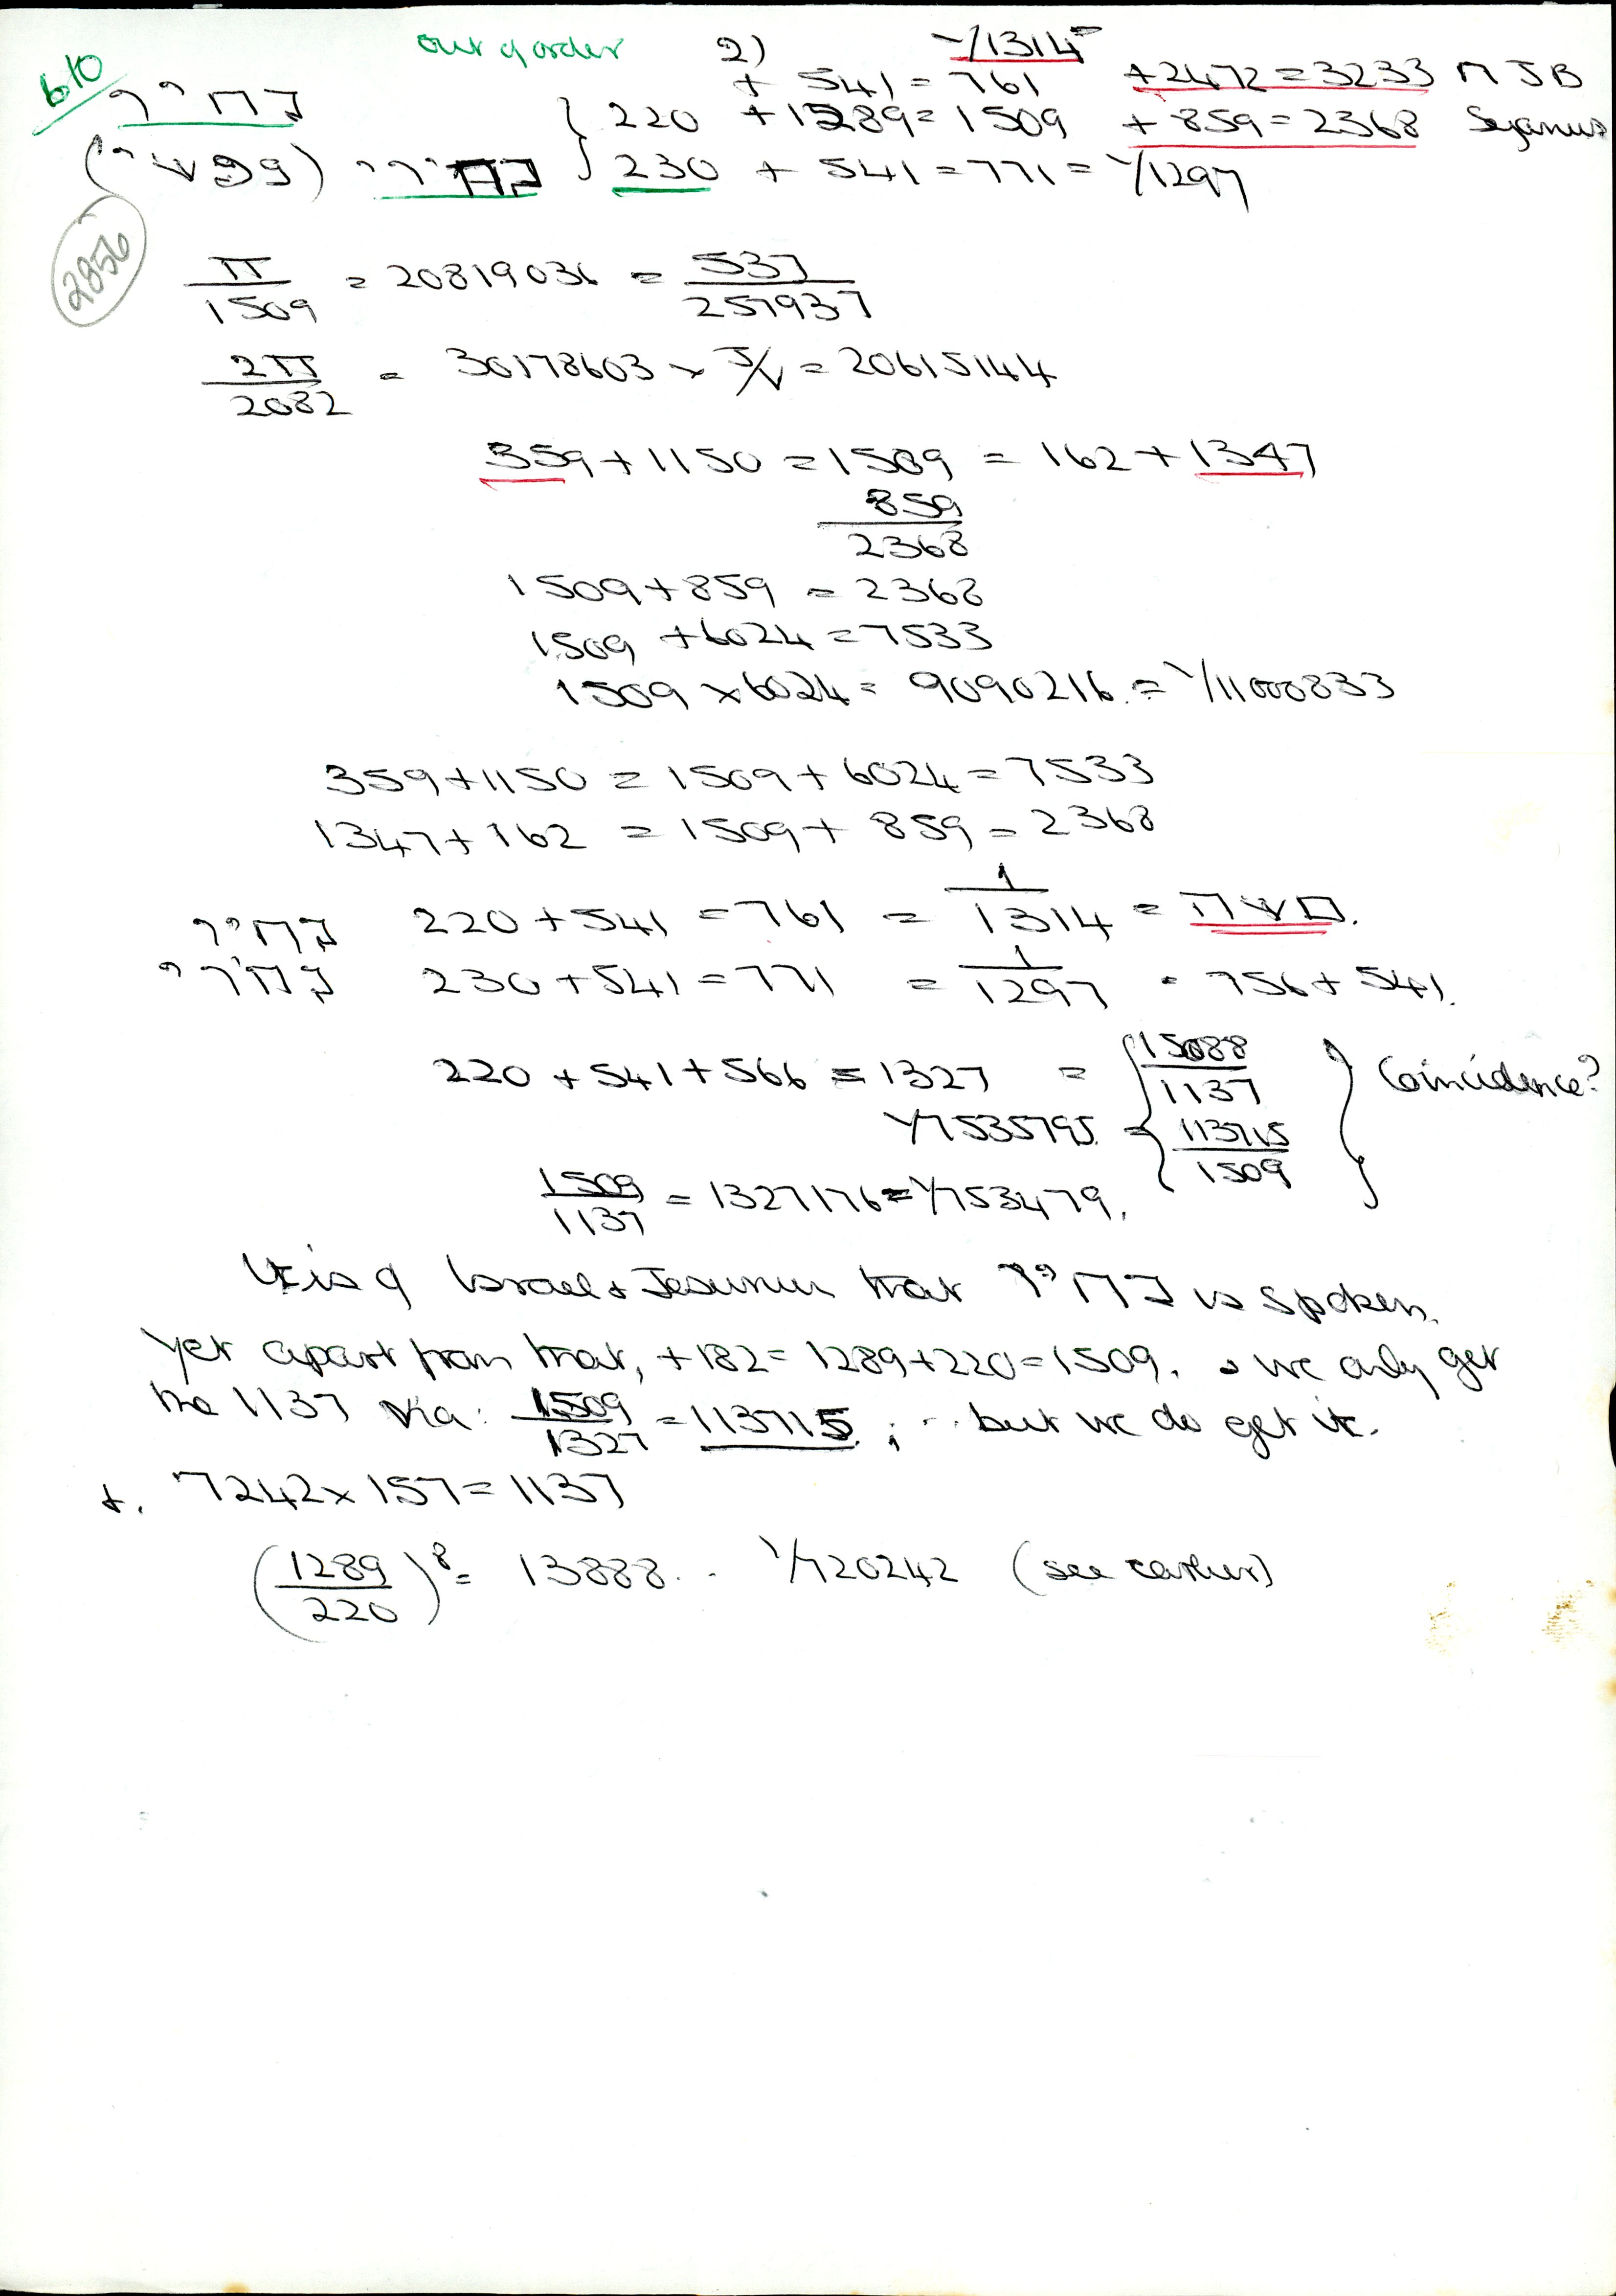 610
out of order 2) 1/1314
+ 541 = 761 +2472 = 3233 ח J B
220 + 1289 = 1509 + 859 = 2368 Sejanus
230 + 541 = 771 = 1/1297
2856
π/1509 = 20819036 = 537/257937
2π/2082 = 30178603 x J/V = 20615144
359 + 1150 = 1509 = 162 + 1347
859
2368
1509 + 859 = 2368
1509 + 6024 = 7533
1509 x 6024 = 9090216. = 1/11000833
359 + 1150 = 1509 + 6024 = 7533
1347 + 162 = 1509 + 859 = 2368
220 + 541 = 761 = 1/1314 =
230 + 541 = 771 = 1/1297 = 756 + 541.
220 + 541 + 566 = 1327 = 15088/1137 Coincidence?
1/7535795. = 113715/1509
1509/1137 = 1327176 = 1/753479.
It is of Israel & Jesurun that is spoken.
Yet apart from that, + 182 = 1289 + 220 = 1509. & we only get
the 1137 via: 1509/1327 = 113715; ... but we do get it.
&. 7242 x 157 = 1137
(1289/220)^8 = 13888.. 1/720242 (see earlier)